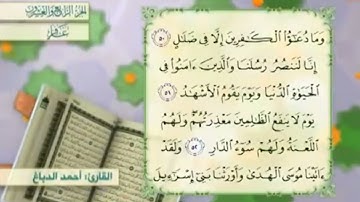 الجزء الرابع والعشرون
سورة غافر
وَمَا دُعَٰٓؤُا۟ ٱلْكَٰفِرِينَ إِلَّا فِى ضَلَٰلٍ ٥٠
إِنَّا لَنَنصُرُ رُسُلَنَا وَٱلَّذِينَ ءَامَنُوا۟ فِى
ٱلْحَيَوٰةِ ٱلدُّنْيَا وَيَوْمَ يَقُومُ ٱلْأَشْهَٰدُ ٥١
يَوْمَ لَا يَنفَعُ ٱلظَّٰلِمِينَ مَعْذِرَتُهُمْ وَلَهُمُ
ٱللَّعْنَةُ وَلَهُمْ سُوٓءُ ٱلدَّارِ ٥٢ وَلَقَدْ
ءَاتَيْنَا مُوسَى ٱلْهُدَىٰ وَأَوْرَثْنَا بَنِىٓ إِسْرَٰٓءِيلَ
القارئ: أحمد الدباغ